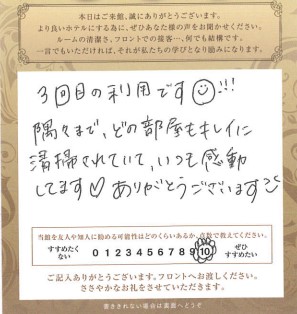 本日はご来館、誠にありがとうございます。
より良いホテルにする為、ぜひあなた様の声をお聞かせください。
ルームの清潔さ、フロントでの接客…、何でも結構です。
一言でもいただければ、それが私たちの学びとなり励みになります。
3回目の利用です!!!
隅々まで、どの部屋もキレイに
清掃されていて、いつも感動
してます♡ ありがとうございます
当館を友人や知人に勧める可能性はどのくらいあるか、点数で教えてください。
すすめたくない 0 1 2 3 4 5 6 7 8 9 10 ぜひすすめたい
ご記入ありがとうございます。フロントへお渡しください。
ささやかなお礼をさせていただきます。
書ききれない場合は裏面へどうぞ